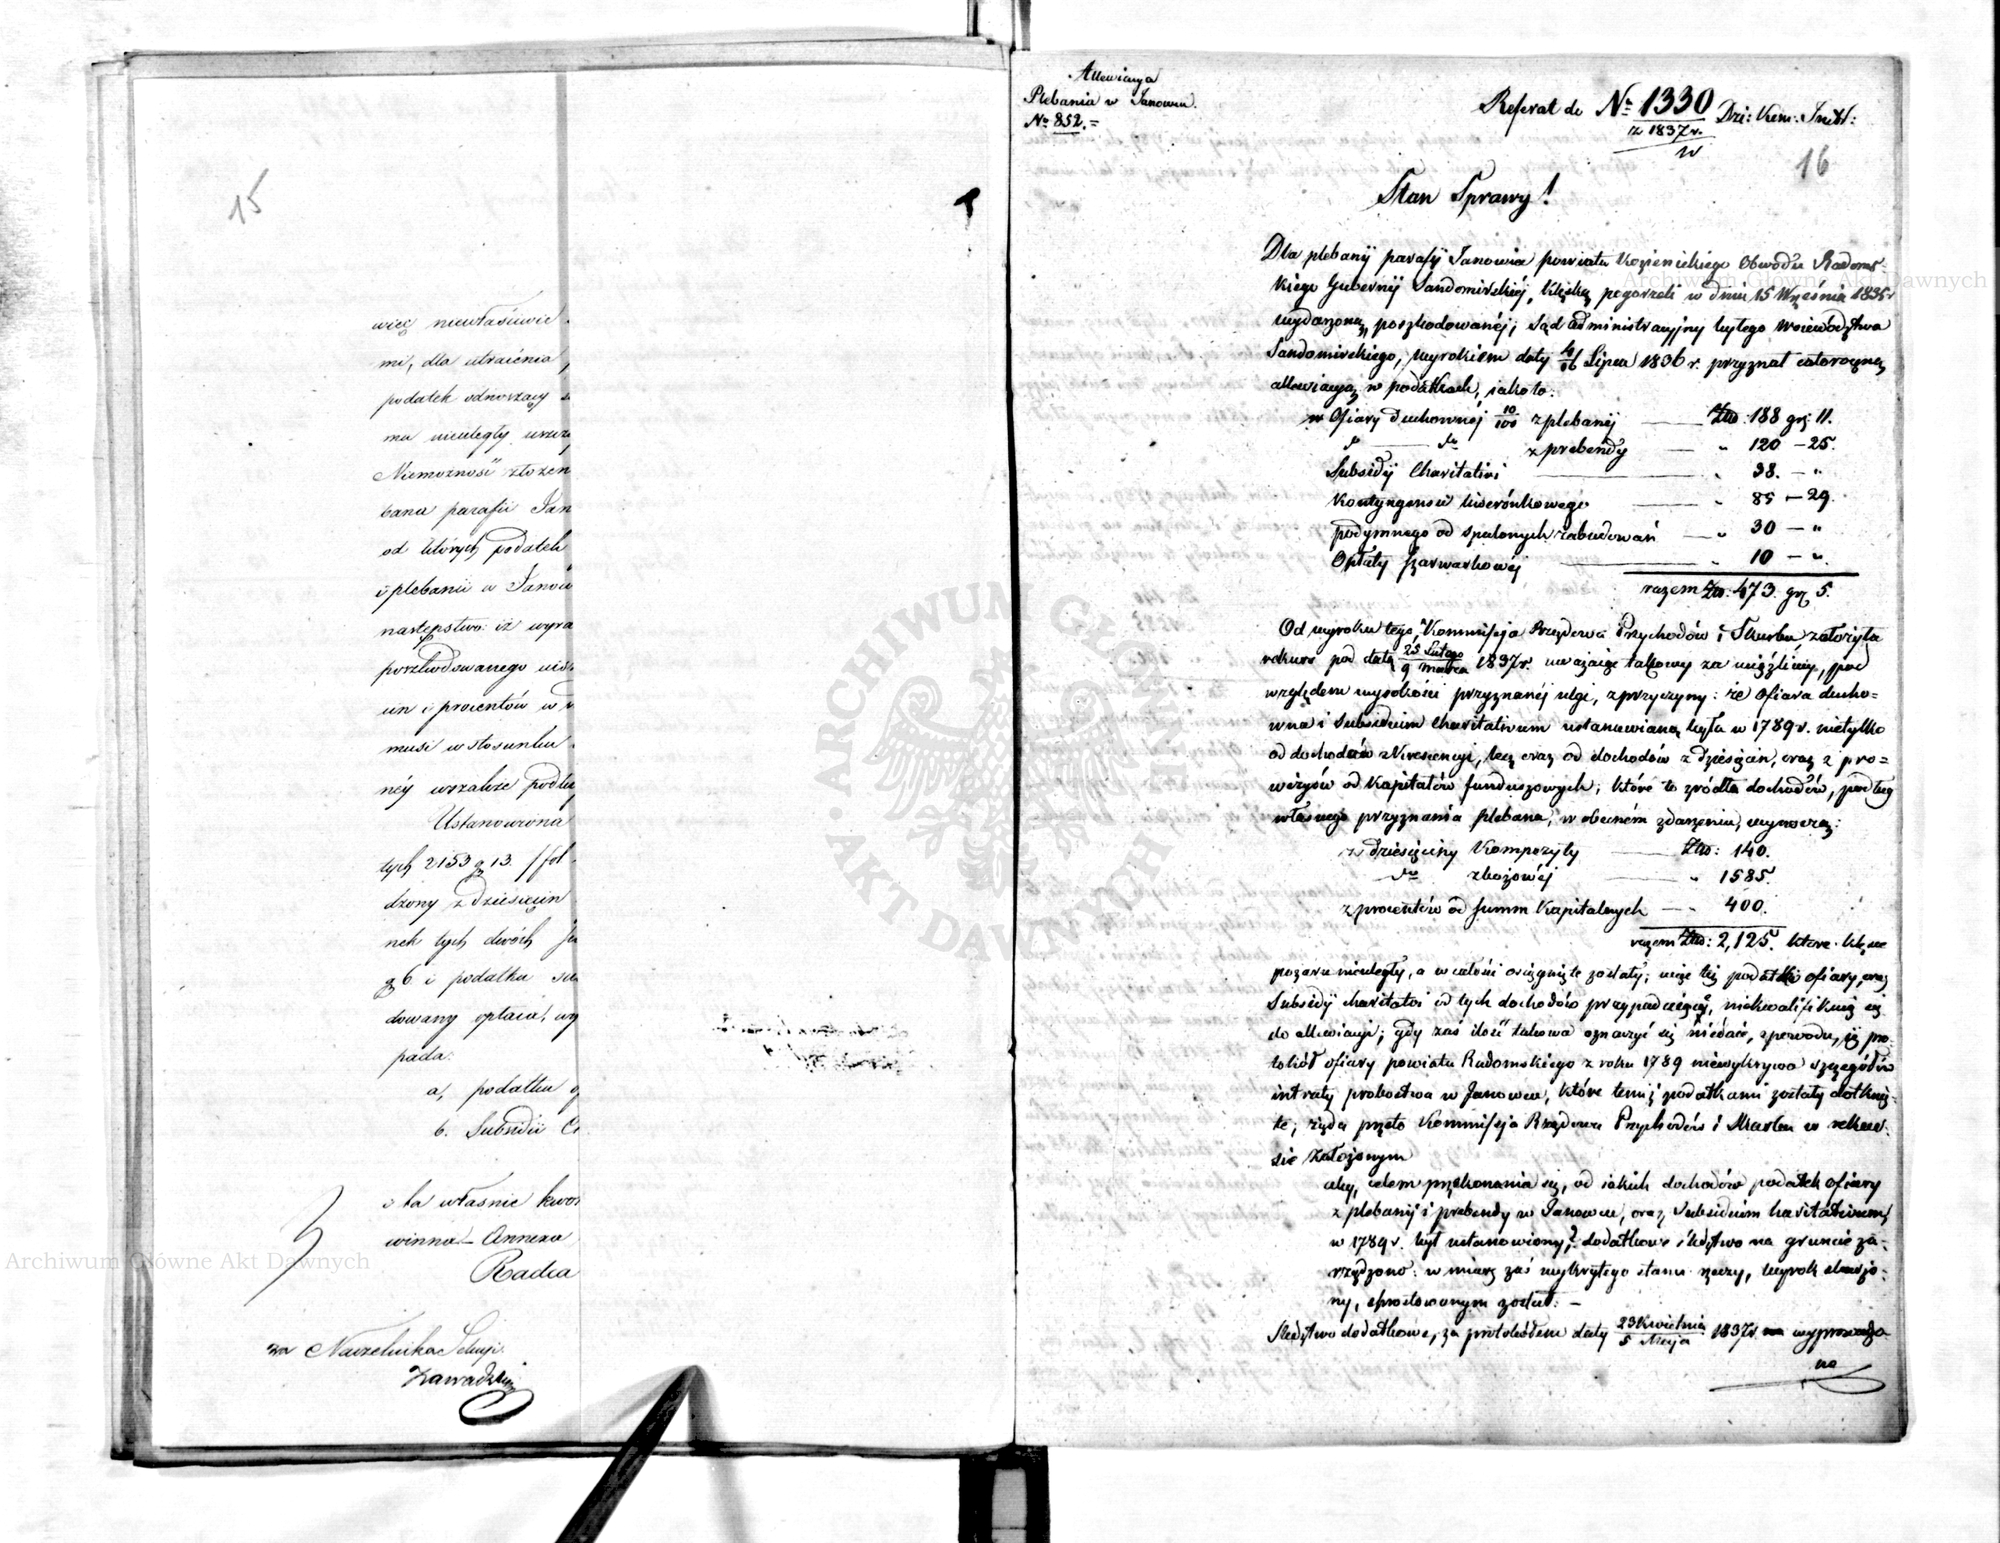 15
więc niewłaściwie
mi, dla utracenia
podatek odnoszący
ma nieuległy
Niemożność złożen
bana parafii Jan
od których podatek
i plebanii w Janow
następstwo: iż wyra
poszkodowanego
un i procentów w
musi w stosunku
néy wszakże podług
Ustanowiona
tych 2153 g 13. /fol
dzony z dziesięcin
nek tych dwóch
g 6 i podatku
dowany opłaca, wy
pada:
a, podatku o
b. Subsidii C
i ta właśnie kwo
winna Annexa
Radca
za Naczelnika Sekcyi
Zawadzki
Allewiacya
Plebania w Janowcu.
No 852.=
Referat do No 1330 Dzi: Kom: Instr:
z 1837 r.
16
Stan Sprawy!
Dla plebanij parafij Janowca powiatu Kozienickiego Obwodu Radoms-
kiego Gubernij Sandomirskiéj, klęską pogorzeli w dniu 15 Września 1835 r
wydarzoną poszkodowanéj; Sąd Administracyjny byłego Województwa
Sandomirskiego, wyrokiem daty 4/16 Lipca 1836 r. przyznał całoroczną
allewiacyą w podatkach, jakoto:
w Ofiary Duchownéj 10/100 z plebanij — Złp: 188 gr: 11.
do — do z prebendy — „ 120 – 25.
Subsidij Charitativi — „ 38. – „
Kontyngensu liwerunkowego — „ 85 – 29.
podymnego od spalonych zabudowań — „ 30 – „
Opłaty szarwarkowéj — „ 10 – „.
razem Złp. 473. gr 5.
Od wyroku tego, Kommissya Rządowa Przychodów i Skarbu założyła
rekurs pod datą 25 Lutego/9 marca 1837 r. uważając takowy za uciążliwy, pod
względem wysokości przyznanéj ulgi, z przyczyny: że Ofiara ducho=
wna i Subsidium Charitativum ustanawianą była w 1789 r. nietylko
od dochodów z Krescencyi, lecz oraz od dochodów z dziesięcin, oraz z pro=
wizyów od Kapitałów funduszowych; które to źródła dochodów, podług
własnego przyznania plebana, w obecném zdarzeniu, wynoszą:
z dziesięciny Kompozyty — Złp: 140.
do zbożowéj — „ 1585.
z procentów od summ Kapitalnych — „ 400.
razem Złp: 2,125. które klęsce
pożaru nieuległy, a w całości osiągnięte zostały; więc też podatki ofiary, oraz
Subsidij charitativi od tych dochodów przypadającéj, niekwalifikują się
do allewiacyi; gdy zaś ilość takowa oznaczyć się niedaie, z powodu, iż pro-
tokół ofiary powiatu Radomskiego z roku 1789 niewykrywa szczegółów
intraty probostwa w Janowcu, które temiż podatkami zostały dotknię-
te; żąda przeto Kommissya Rządowa Przychodów i Skarbu w rekur-
sie założonym
aby, celem przekonania się, od jakich dochodów podatek ofiary
z plebanij i prebendy w Janowcu, oraz Subsidium haritativum,
w 1789 r. był ustanowiony, dodatkowe śledztwo na gruncie za-
rządzono: w miarę zaś wykrytego stanu rzeczy, wyrok
ny, sprostowanym został: –
Śledztwo dodatkowe, za protokółem daty 23 Kwietnia/5 Maja 1837 r. wyprowadzo-
ne
ARCHIWUM GŁÓWNE
AKT DAWNYCH
Archiwum Główne Akt Dawnych
Archiwum Główne Akt Dawnych